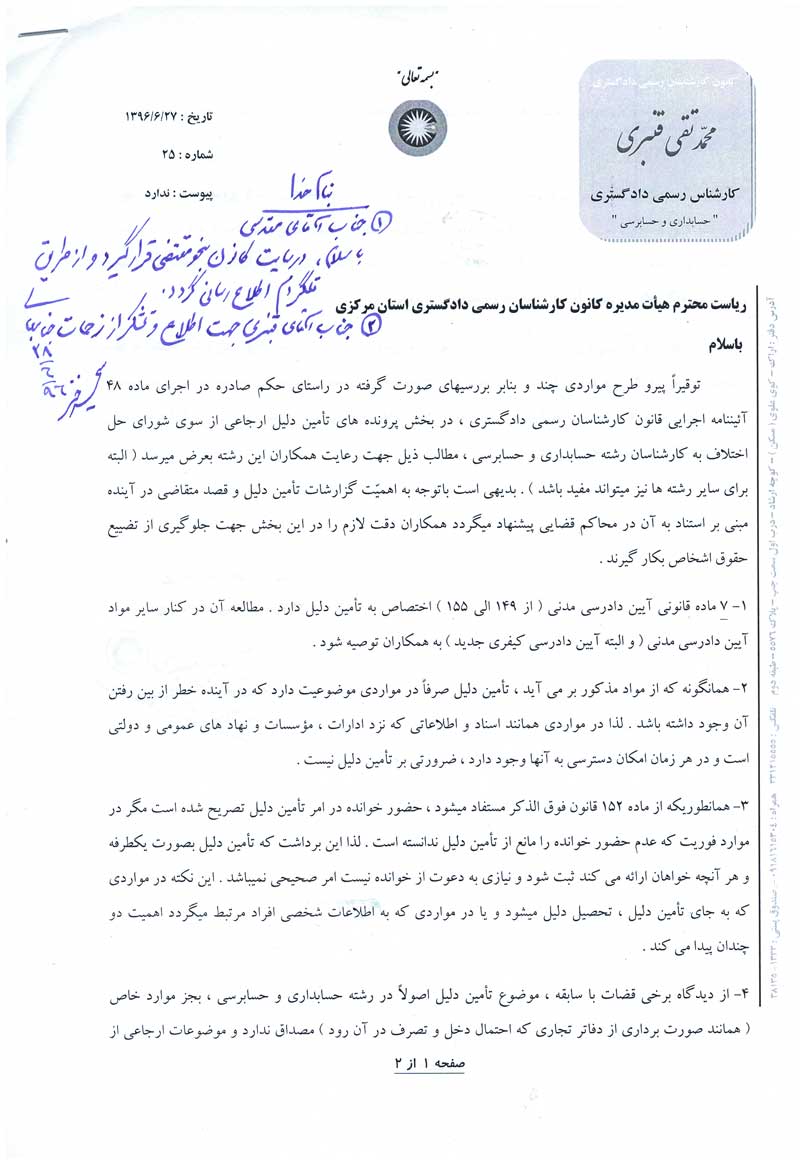 بسمه تعالی
کانون کارشناسان رسمی دادگستری
محمّد تقی قنبری
کارشناس رسمی دادگستری
" حسابداری و حسابرسی "
تاریخ : ۱۳۹۶/۶/۲۷
شماره : ۲۵
پیوست : ندارد
بنام خدا
۱ جناب آقای مقدسی
باسلام، در سایت کانون بنحو مقتضی قرار گیرد و از طریق
تلگرام اطلاع رسانی گردد.
۲ جناب آقای قنبری جهت اطلاع و تشکر از زحمات جنابعالی
ریاست محترم هیأت مدیره کانون کارشناسان رسمی دادگستری استان مرکزی
باسلام
توقیراً پیرو طرح مواردی چند و بنابر بررسیهای صورت گرفته در راستای حکم صادره در اجرای ماده ۴۸
آئیننامه اجرایی قانون کارشناسان رسمی دادگستری ، در بخش پرونده های تأمین دلیل ارجاعی از سوی شورای حل
اختلاف به کارشناسان رشته حسابداری و حسابرسی ، مطالب ذیل جهت رعایت همکاران این رشته بعرض میرسد ( البته
برای سایر رشته ها نیز میتواند مفید باشد ) . بدیهی است باتوجه به اهمیّت گزارشات تأمین دلیل و قصد متقاضی در آینده
مبنی بر استناد به آن در محاکم قضایی پیشنهاد میگردد همکاران دقت لازم را در این بخش جهت جلوگیری از تضییع
حقوق اشخاص بکار گیرند .
۱- ۷ ماده قانونی آیین دادرسی مدنی ( از ۱۴۹ الی ۱۵۵ ) اختصاص به تأمین دلیل دارد . مطالعه آن در کنار سایر مواد
آیین دادرسی مدنی ( و البته آیین دادرسی کیفری جدید ) به همکاران توصیه شود .
۲- همانگونه که از مواد مذکور بر می آید ، تأمین دلیل صرفاً در مواردی موضوعیت دارد که در آینده خطر از بین رفتن
آن وجود داشته باشد . لذا در مواردی همانند اسناد و اطلاعاتی که نزد ادارات ، مؤسسات و نهاد های عمومی و دولتی
است و در هر زمان امکان دسترسی به آنها وجود دارد ، ضرورتی بر تأمین دلیل نیست .
۳- همانطوریکه از ماده ۱۵۲ قانون فوق الذکر مستفاد میشود ، حضور خوانده در امر تأمین دلیل تصریح شده است مگر در
موارد فوریت که عدم حضور خوانده را مانع از تأمین دلیل ندانسته است . لذا این برداشت که تأمین دلیل بصورت یکطرفه
و هر آنچه خواهان ارائه می کند ثبت شود و نیازی به دعوت از خوانده نیست امر صحیحی نمیباشد . این نکته در مواردی
که به جای تأمین دلیل ، تحصیل دلیل میشود و یا در مواردی که به اطلاعات شخصی افراد مرتبط میگردد اهمیت دو
چندان پیدا می کند .
۴- از دیدگاه برخی قضات با سابقه ، موضوع تأمین دلیل اصولاً در رشته حسابداری و حسابرسی ، بجز موارد خاص
( همانند صورت برداری از دفاتر تجاری که احتمال دخل و تصرف در آن رود ) مصداق ندارد و موضوعات ارجاعی از
صفحه ۱ از ۲